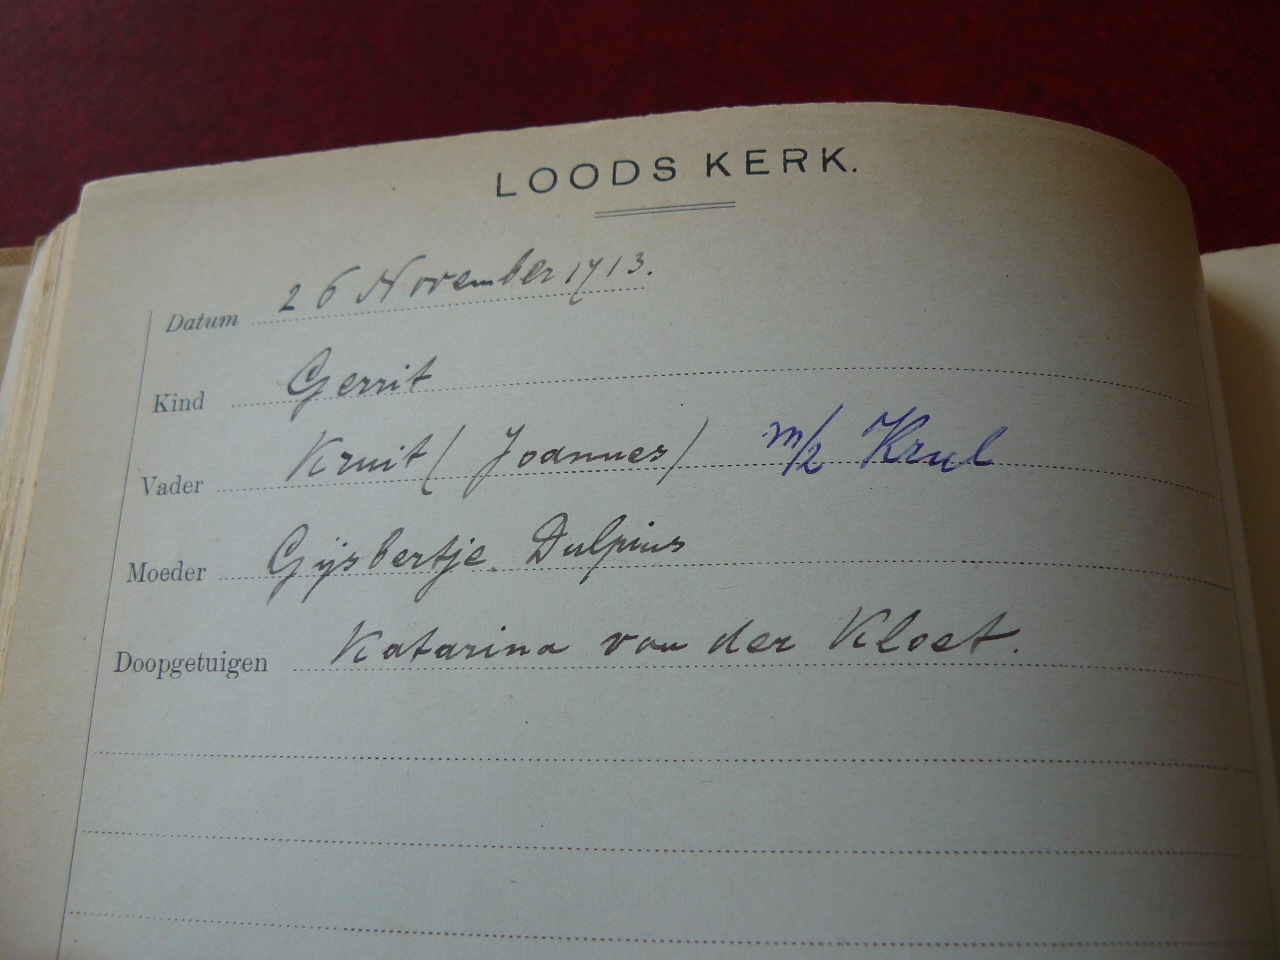 LOODS KERK.
Datum 26 November 1713.
Kind Gerrit
Vader Kruit (Joannes) m/z Krul
Moeder Gijsbertje Dulpius
Doopgetuigen Katarina van der Kloet.